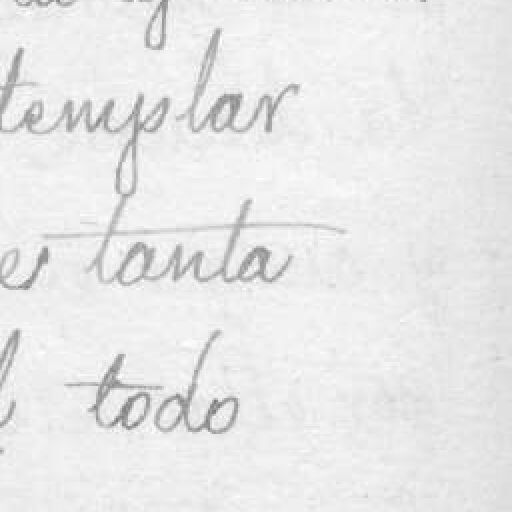 templar
es tanta
todo